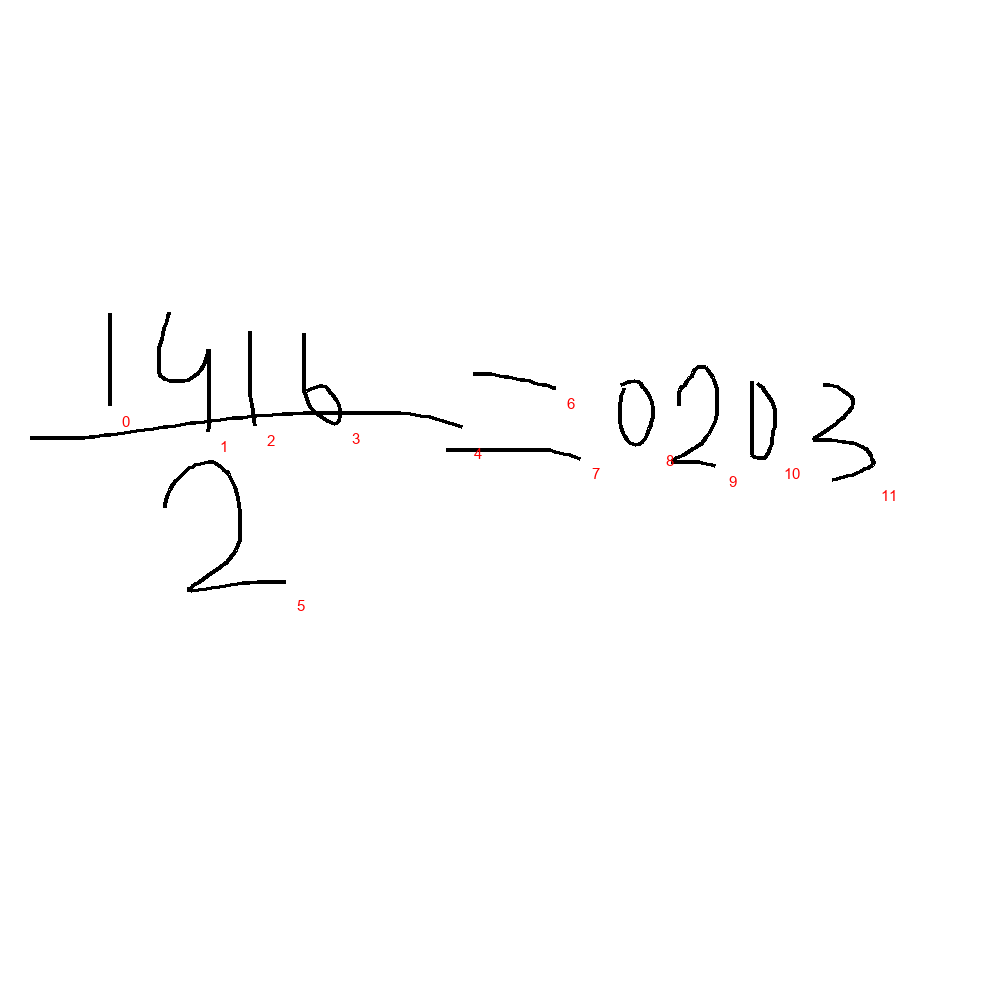 1416
2
= 0203
0
1
2
3
4
5
6
7
8
9
10
11